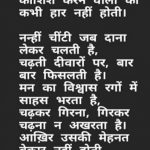 कोशिश करने वालों की
कभी हार नहीं होती।
नन्हीं चींटी जब दाना
लेकर चलती है,
चढ़ती दीवारों पर, बार
बार फिसलती है।
मन का विश्वास रगों में
साहस भरता है,
चढ़कर गिरना, गिरकर
चढ़ना न अखरता है।
आख़िर उसकी मेहनत
बेकार नहीं होती